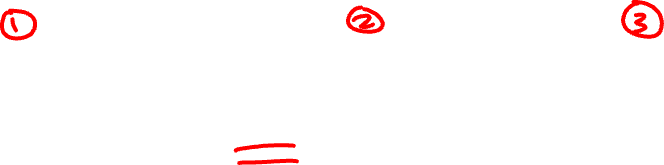 ① ② ③
=